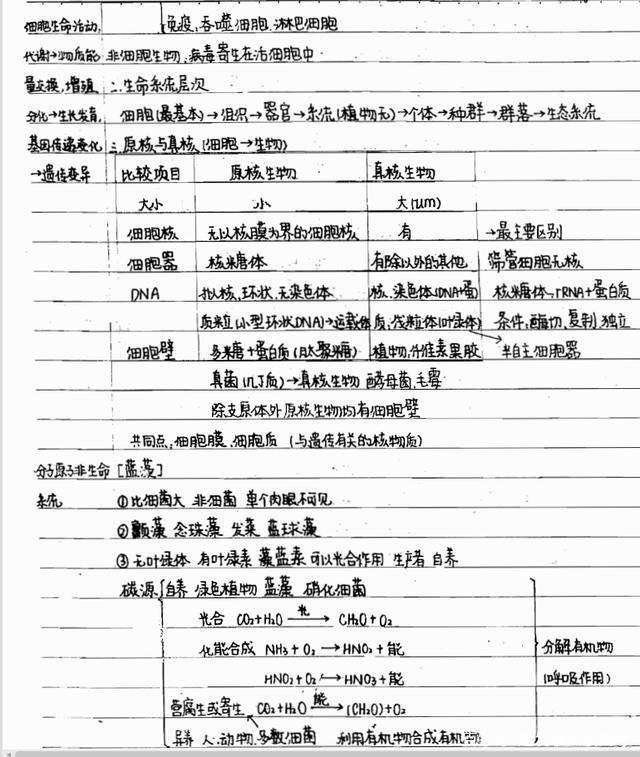 细胞生命活动, 免疫,吞噬细胞.淋巴细胞
代谢→物质能 非细胞生物,病毒寄生在活细胞中
量交换,增殖 二.生命系统层次
分化→生长发育, 细胞(最基本)→组织→器官→系统(植物无)→个体→种群→群落→生态系统
基因传递变化 三.原核与真核(细胞→生物)
→遗传变异 比较项目 原核生物 真核生物
大小 小 大(um)
细胞核 无以核膜为界的细胞核 有 →最主要区别
细胞器 核糖体 有除以外的其他 筛管细胞无核
DNA 拟核,环状,无染色体 核.染色体(DNA+蛋 核糖体→rRNA+蛋白质
质粒(小型环状DNA)→运载体 质,线粒体(叶绿体) 条件,酶切,复制 独立
细胞壁 多糖+蛋白质(肽聚糖) 植物,纤维素果胶 半自主细胞器
真菌(几丁质)→真核生物 酵母菌,毛霉
除支原体外原核生物均有细胞壁
共同点,细胞膜.细胞质 (与遗传有关的核物质)
分子原子非生命 [蓝藻]
系统 ①比细菌大 非细菌 单个肉眼不可见
②颤藻 念珠藻 发菜 蓝球藻
③无叶绿体 有叶绿素 藻蓝素 可以光合作用 生产者 自养
碳源 自养 绿色植物 蓝藻 硝化细菌
光合 CO2+H2O 光→ CH2O+O2
化能合成 NH3+O2→HNO2+能 分解有机物
HNO2+O2→HNO3+能 (呼吸作用)
营腐生或寄生 CO2+H2O 能→ (CH2O)+O2
异养 人.动物.多数细菌 利用有机物合成有机物